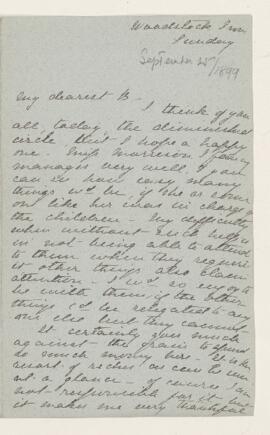 Woodstock Inn
Sunday
September 25/1899
My dearest B.
I think of you
all today the diminished
circle, but I hope a happy
one. Miss Morrison I fancy
manages very well, & you
can so how easy many
things wd. be, if she or some
one like her was in charge of
the children - My difficulty
when without such help is
in not being able to attend
to them when they require
it other things also claim
attention. I wd. so enjoy to
be with them, if the other
things cd be relegated to any
one else but they cannot.
It certainly goes much
against the grain to spend
so much money here - It is the
resort of riches as can be seen
at a glance - of course I am
not responsible for it but
it makes me very thankful